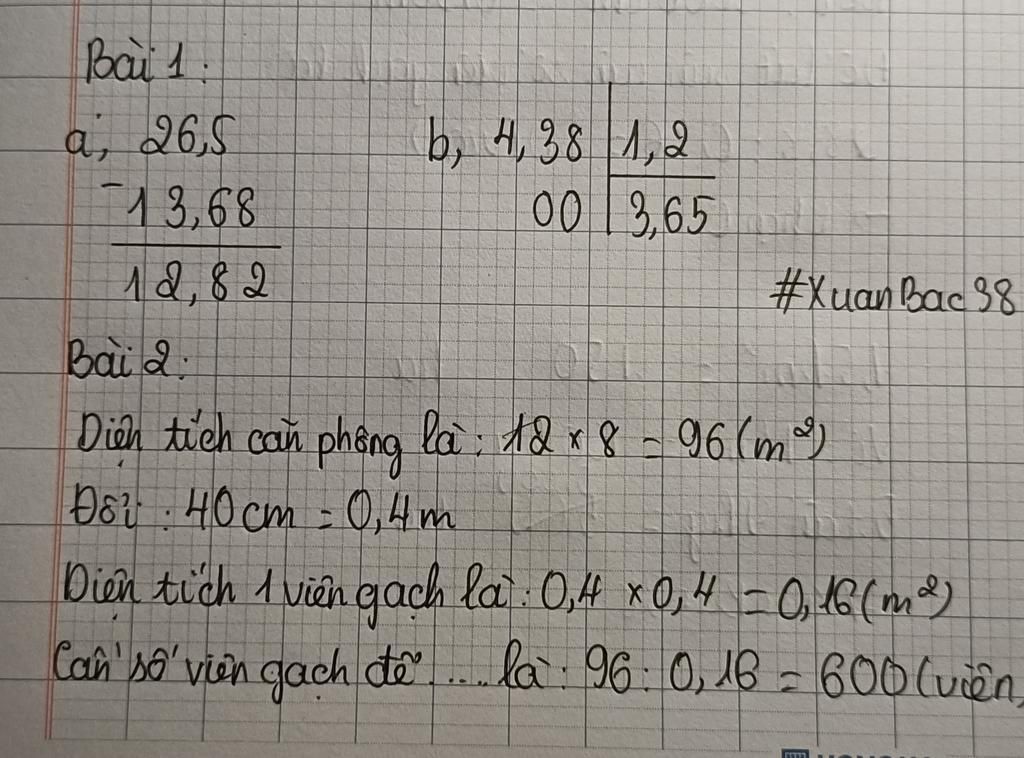 Bài 1:
a, 26,5 b, 4,38 1,2
- 13,68 00 3,65
12,82
#XuanBac38
Bài 2:
Diện tích căn phòng là: 12 × 8 = 96 (m²)
Đổi: 40cm = 0,4m
Diện tích 1 viên gạch là: 0,4 × 0,4 = 0,16 (m²)
Cần số viên gạch để .... là: 96 : 0,16 = 600 (viên